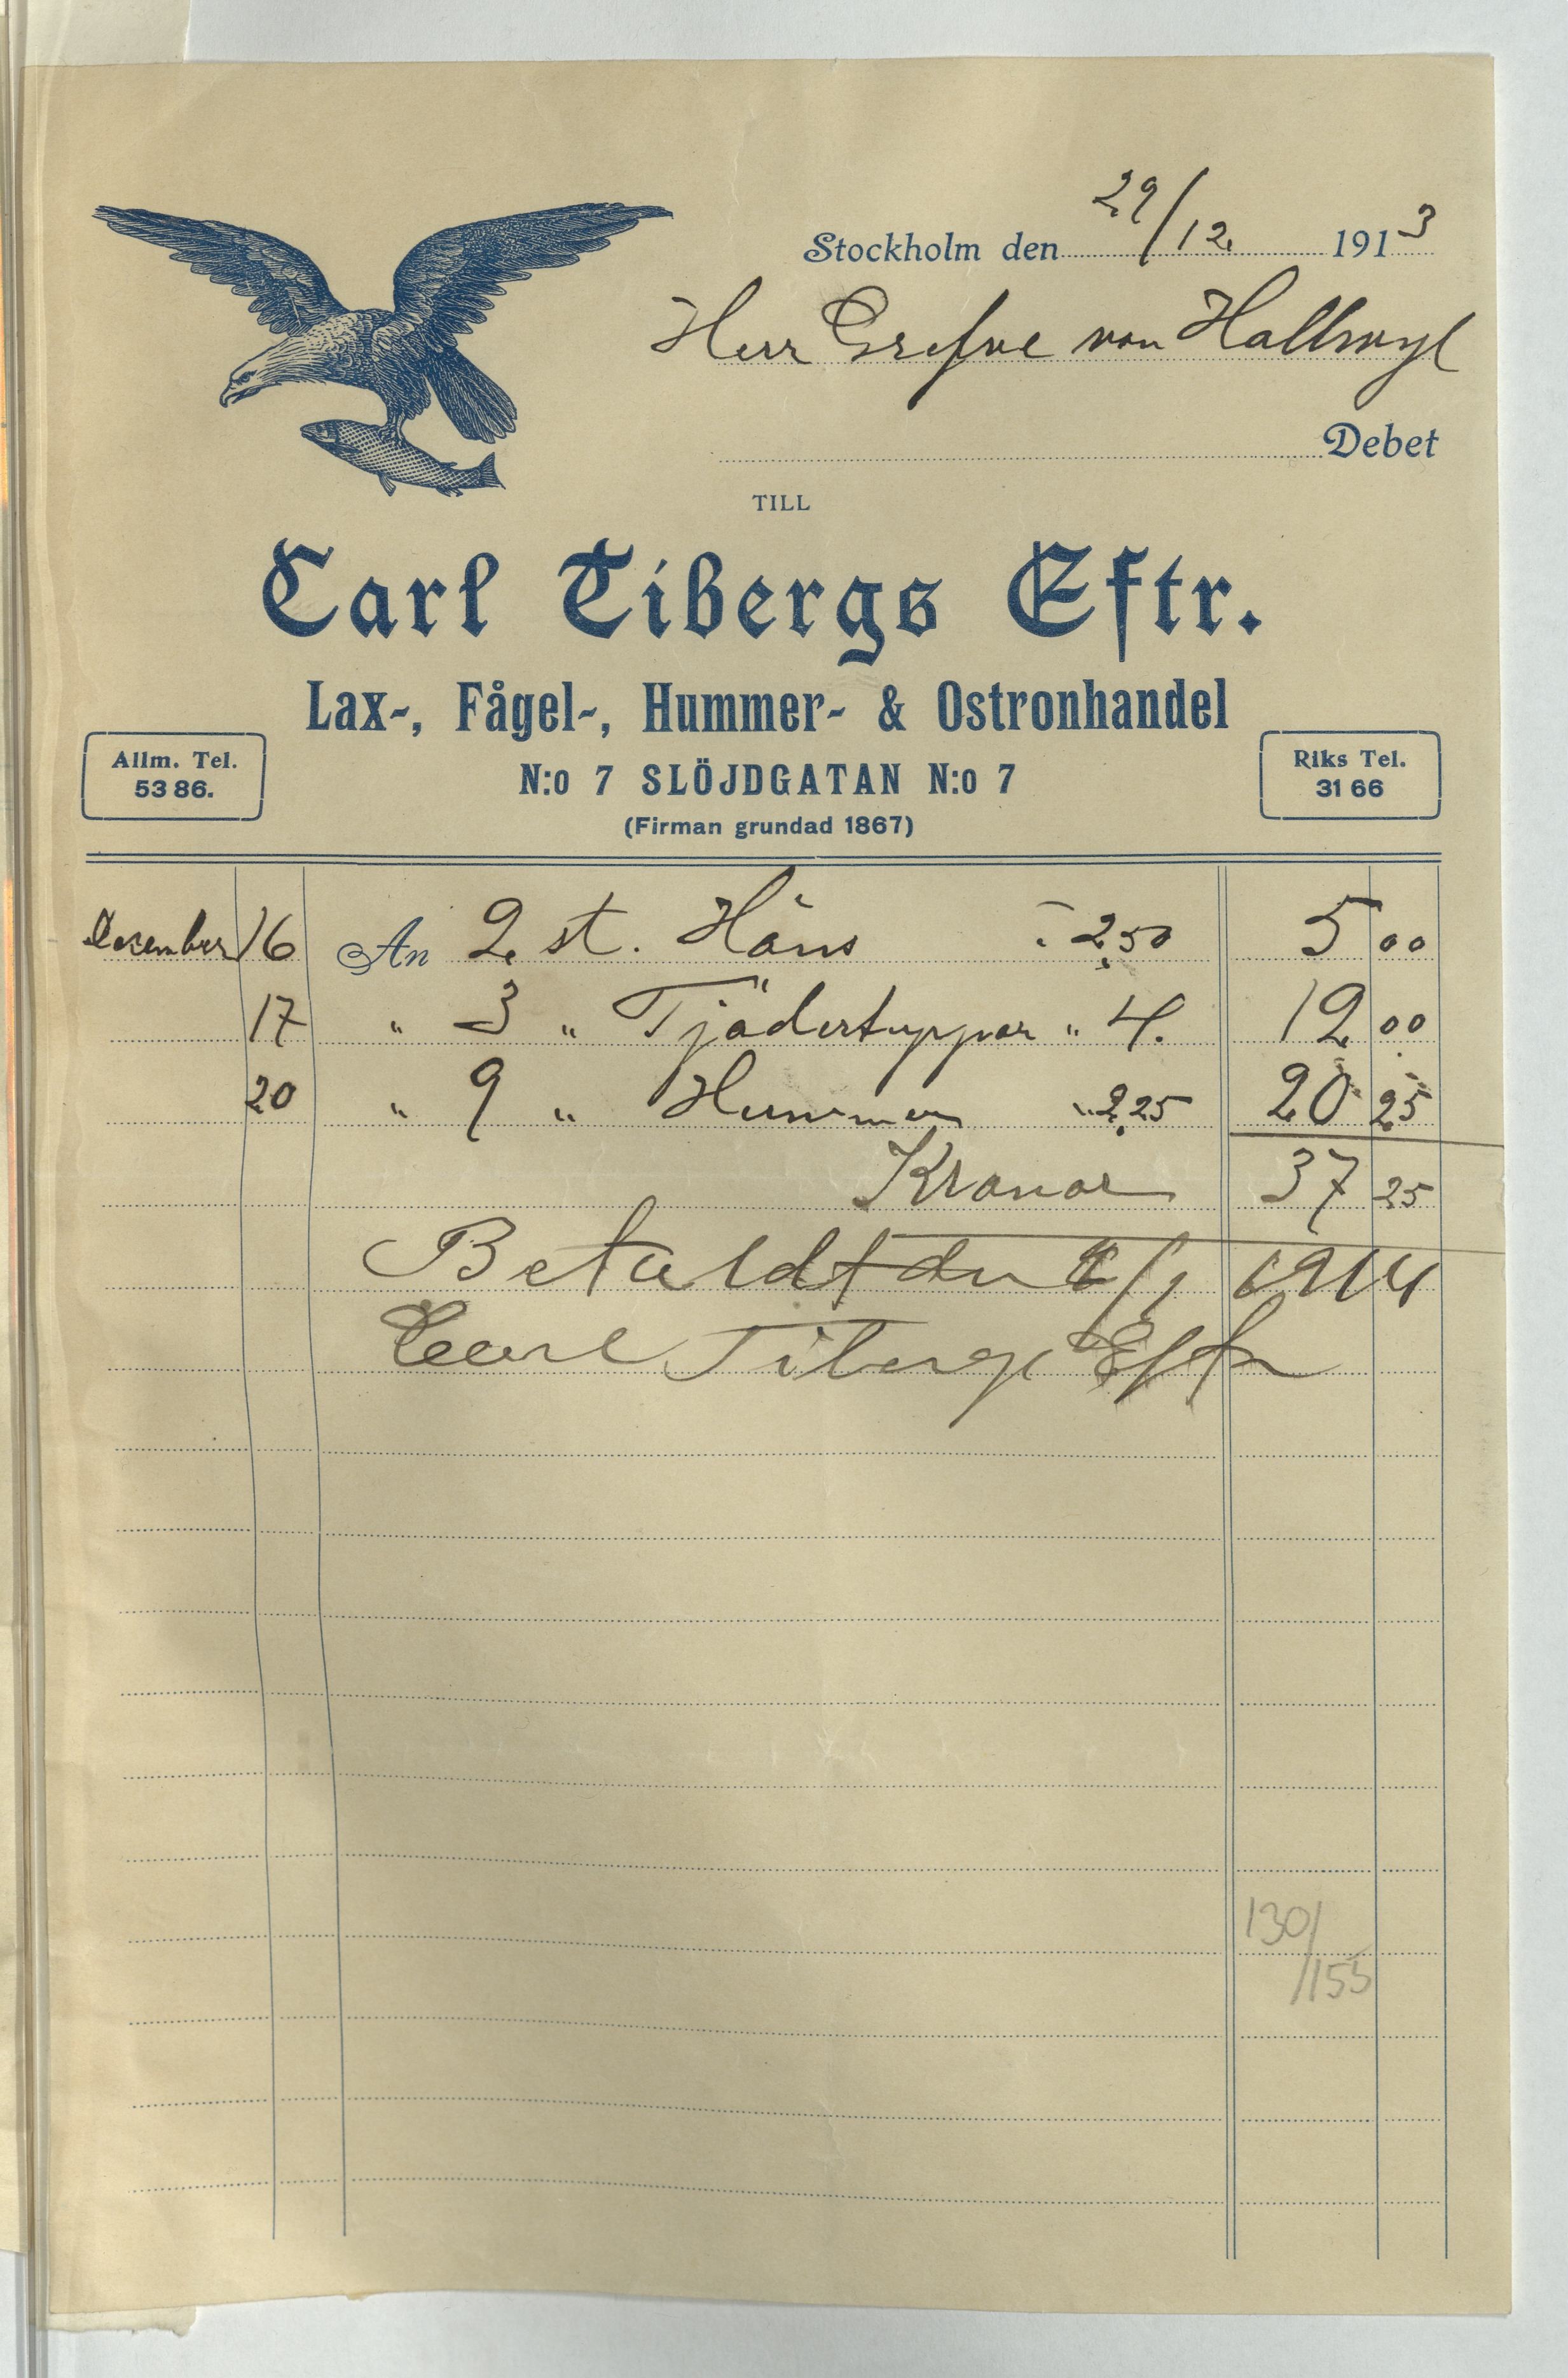 29/12. 
Stockholm den 1913
Herr Grefve von Hallwyl
Debet
TILL
Carl Tibergs Eftr.
Lax-, Fågel-, Hummer- & Ostronhandel
Allm. Tel.
53 86.
N:o 7 SLÖJDGATAN N:o 7
Riks Tel.
31 66
(Firman grundad 1867)
December 16 An 2 st. Höns à 2,50 5 00
17 " 3 " Tjädertuppar " 4. 12 00
20 " 9 " Hummer " 2,25 20 25
Kronor 37 25
Betaldt den /1 1914
Carl Tibergs Eftr
130/
/155